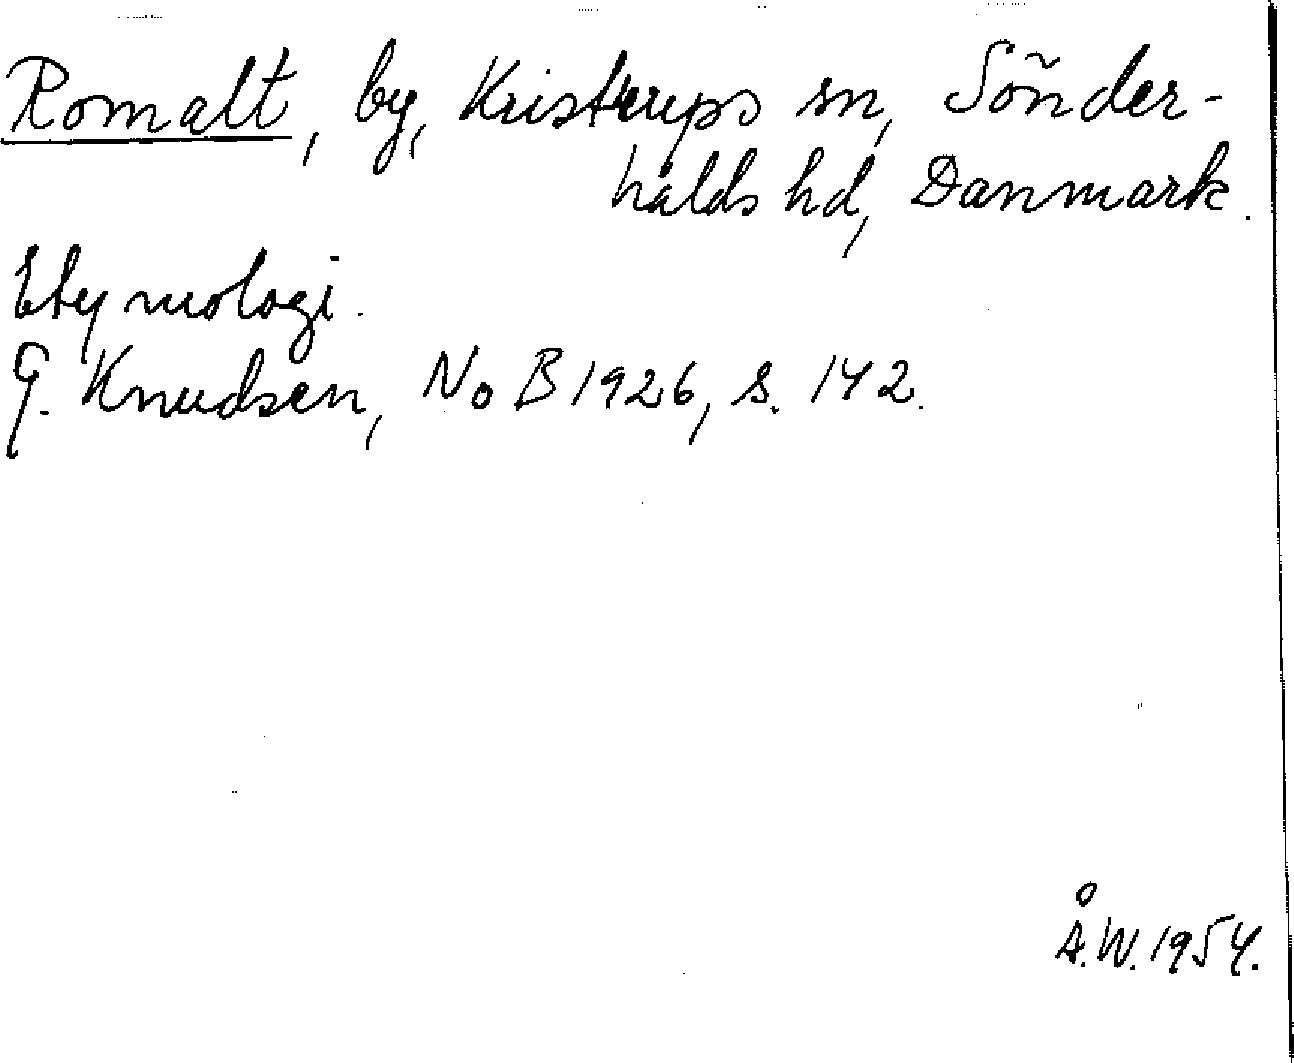 Romalt, by, Kristrups sn, Sönder-
halds hd, Danmark.
Etymologi.
G. Knudsen, NoB 1926, s. 142.
Å.W. 1954.